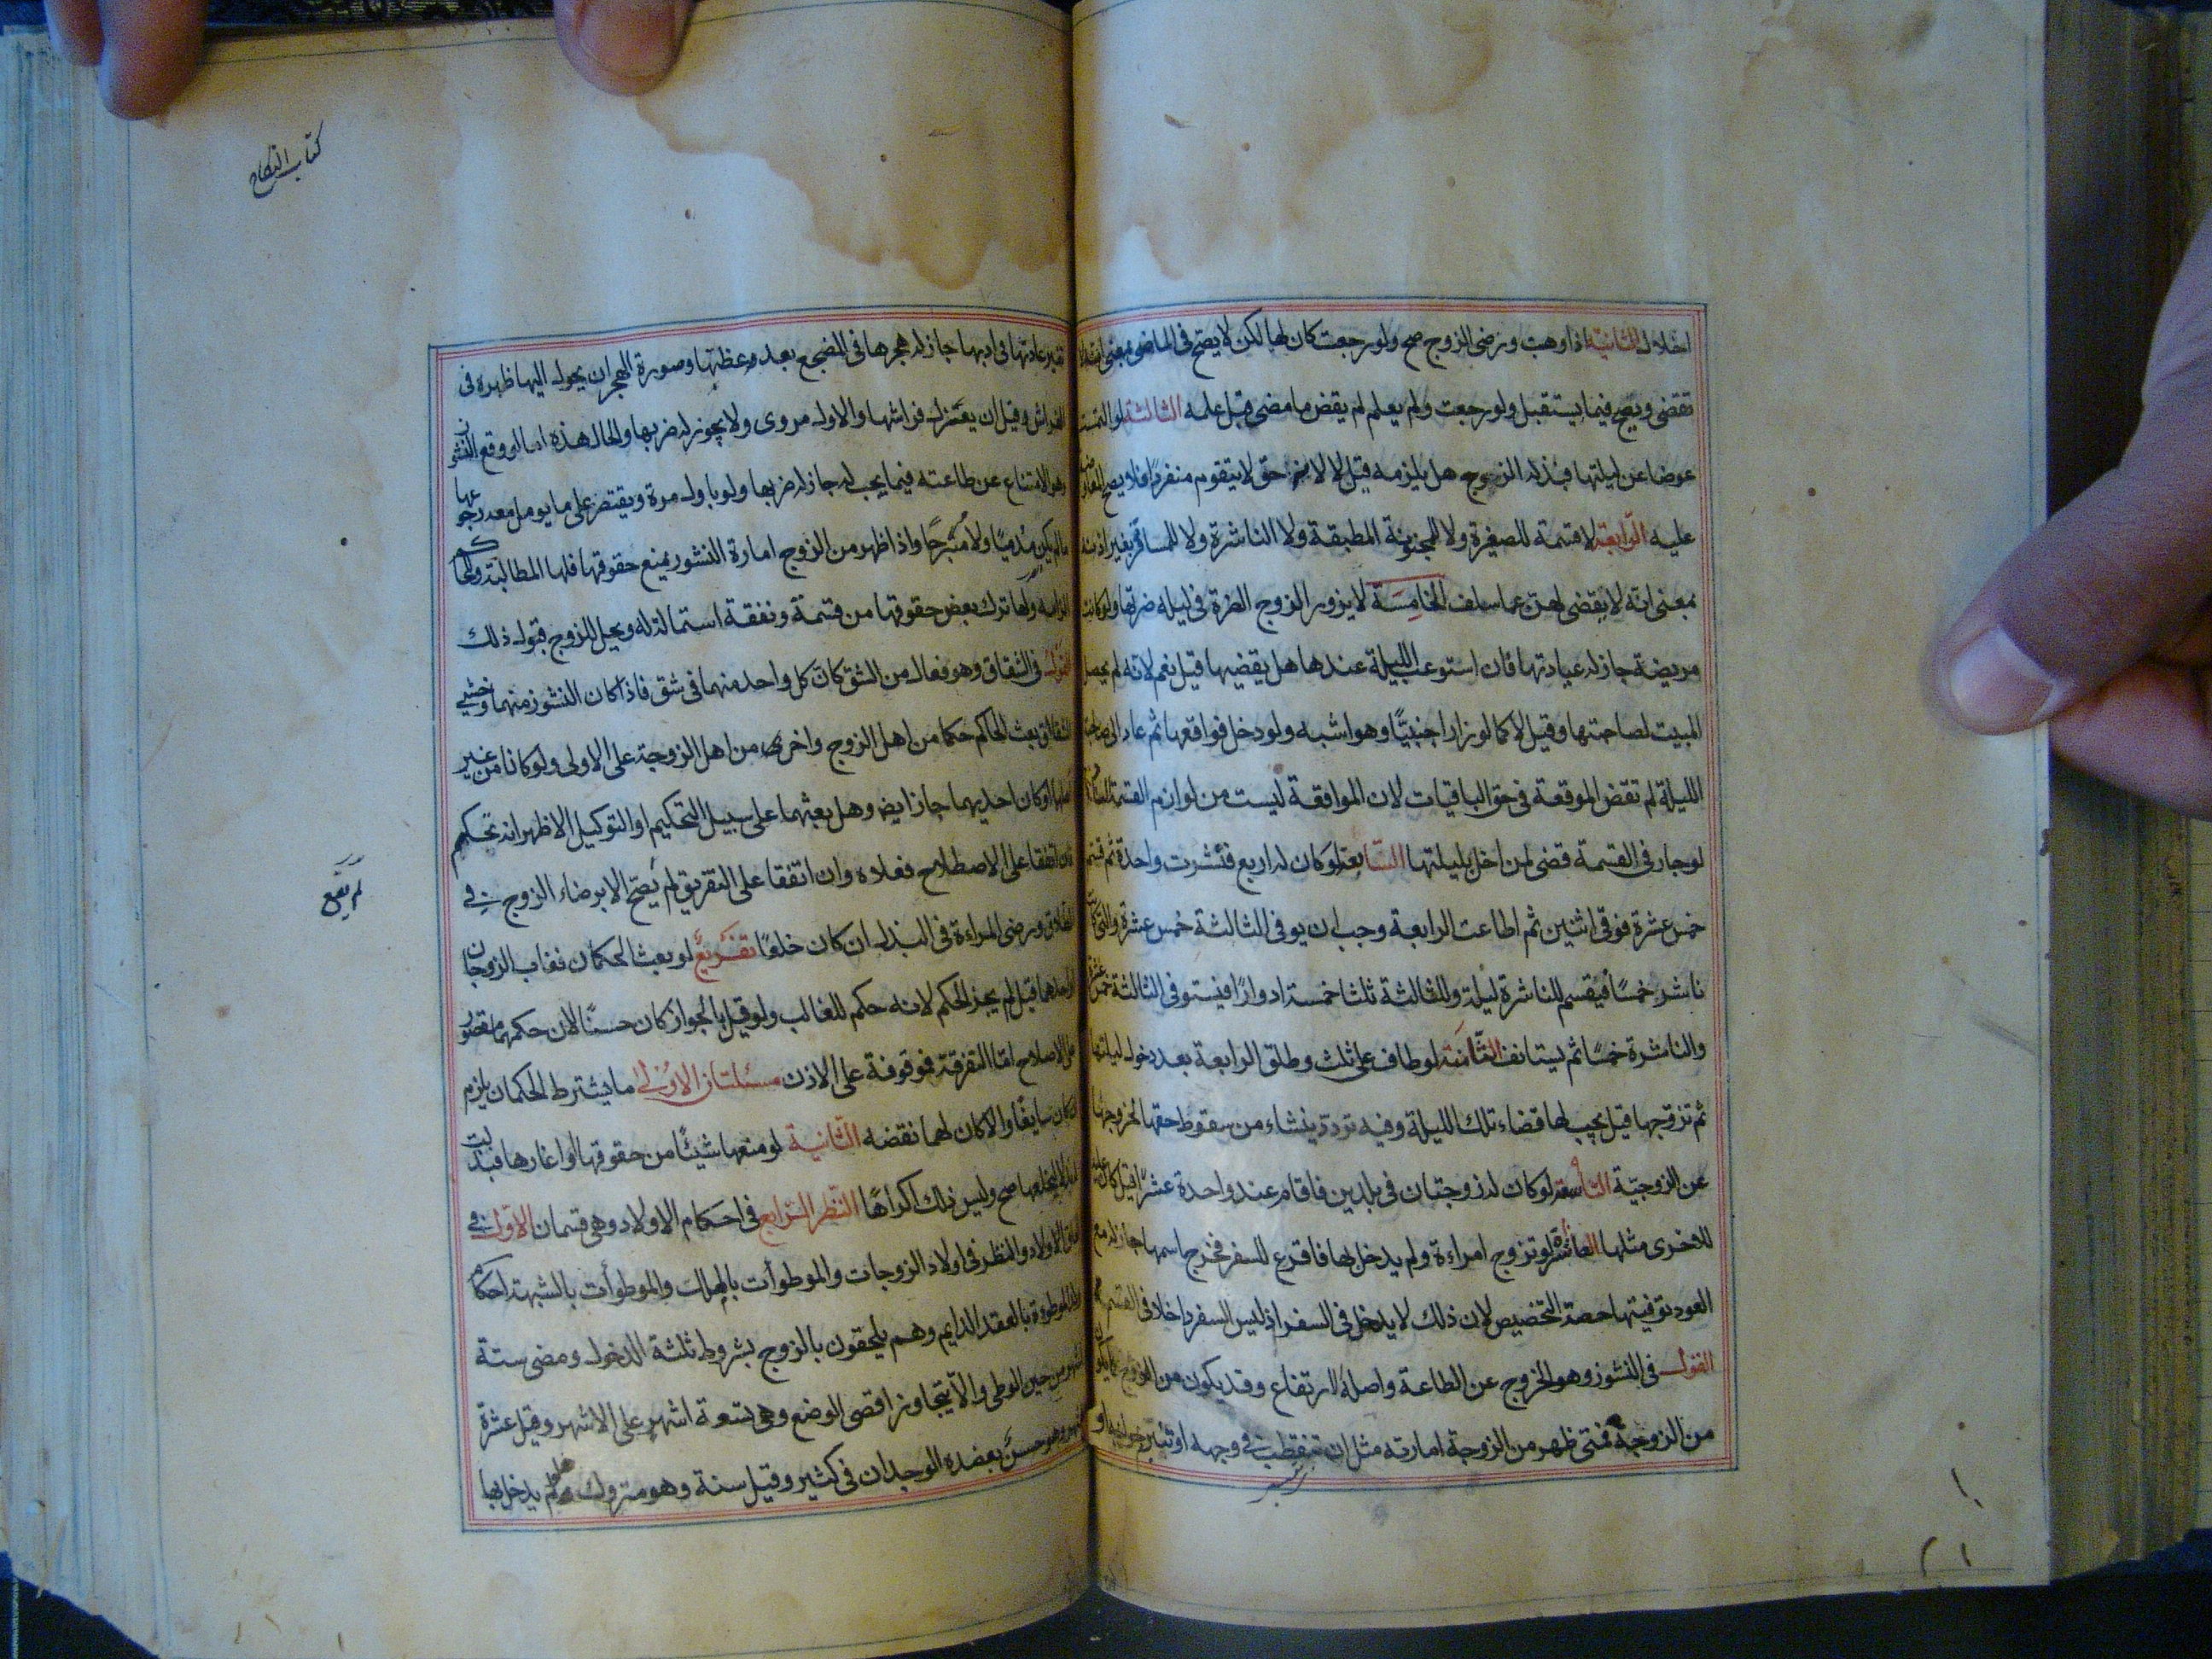 اخلال الثانية اذا وهبت ورضى الزوج صح ولو رجعت كان لها لكن لا يصح فى الماضى بمعنى انه لا
تقضى ويصح فيما يستقبل ولو رجعت ولم يعلم لم يقض ما مضى قبل علمه الثالثة لو التمست
عوضا عن ليلتها فبذله الزوج هل يلزمه قيل لا لانه حق لا يتقوم منفردا فلا يصح المعاوضة
عليه الرابعة لا قسمة للصغيرة ولا المجنونة المطبقة ولا الناشزة ولا المسافرة بغير اذنه
بمعنى انه لا يقضى لهن عما سلف الخامسة لا يزور الزوج الضرة فى ليلة ضرتها ولو كانت
مريضة جاز له عيادتها فان استوعب الليلة عندها هل يقضيها قيل نعم لانه لم يحصل
المبيت لصاحبتها وقيل لا كما لو زار اجنبيًّا وهو اشبه ولو دخل فواقعها ثم عاد الى صاحبة
الليلة لم تقض المواقعة فى حق الباقيات لان المواقعة ليست من لوازم القسمة السادسة
لو جار فى القسمة قضى لمن اخل بليلتها السابعة لو كان له اربع فنشزت واحدة ثم قسم
خمس عشرة فوفى اثنين ثم اطاعت الرابعة وجب ان يوفى الثالثة خمس عشرة والتى كانت
ناشزا خمسًا فيقسم للناشزة ليلة وللثالثة ثلثا خمسة ادوارًا فيستوفى الثالثة خمس عشرة
والناشزة خمسًا ثم يستانف الثامنة لو طاف على ثلث وطلق الرابعة بعد دخول ليلتها
ثم تزوجها قيل يجب لها قضاء تلك الليلة وفيه تردد ينشاء من سقوط حقها بخروجها
عن الزوجيّة التاسعة لو كان له زوجتان فى بلدين فاقام عند واحدة عشرًا قيل كان عليه
للاخرى مثلها العاشرة لو تزوج امراءة ولم يدخل بها فاقرع للسفر فخرج اسمها جاز له مع
العود توفيتها حصة التخصيص لان ذلك لا يدخل فى السفر اذ ليس السفر داخلا فى القسم
القول فى النشوز وهو الخروج عن الطاعة واصله الارتفاع وقد يكون من الزوج كما يكون
من الزوجة فمتى ظهر من الزوجة امارته مثل ان تتقطب فى وجهه او تتبرم بحوائجه او
تغير عادتها فى ادبها جاز له هجرها فى المضجع بعد وعظتها وصورة الهجر ان يحول اليها ظهره فى
الفراش وقيل ان يعتزل فراشها والاول مروى ولا يجوز له ضربها والحال هذه اما لو وقع النشوز
وهو الامتناع عن طاعته فيما يجب له جاز له ضربها ولو باول مرة ويقتصر على ما يومل معه رجوعها
ما لم يكن مدميًا ولا مبرحًا واذا ظهر من الزوج امارة النشوز بمنع حقوقها فلها المطالبة وللحاكم
الزامه ولها ترك بعض حقوقها من قسمة ونفقة استمالة له ويحل للزوج قبول ذلك
القول فى الشقاق وهو فعال من الشق كان كل واحد منهما فى شق فاذا كان النشوز منهما وخشى
الشقاق بعث الحاكم حكما من اهل الزوج واخر من اهل الزوجة على الاولى ولو كانا من غير
اهلهما او كان احديهما جاز ايض وهل بعثهما على سبيل التحكيم او التوكيل الاظهر انه تحكيم
فان اتفقا على الاصطلاح فعلاه وان اتفقا على التفريق لم يصح الا برضاء الزوج فى
الطلاق ورضى المراءة فى البذل ان كان خلعًا تفريع لو بعث الحكمان فغاب الزوجان
او احدهما قيل لم يجز الحكم لانه حكم للغائب ولو قيل بالجواز كان حسنًا لان حكمهما مقصور
على الاصلاح امّا التفرقة فموقوفة على الاذن مسئلتان الاولى ما يشترط الحكمان يلزم
ان كان سايغًا والا كان لهما نقضه الثانية لو منعها شيئًا من حقوقها او اغارها فبذلت
له بذلا ليخلعها صح وليس ذلك اكراهًا النظر الرابع فى احكام الاولاد وهى قسمان الاول فى
الحاق الاولاد والنظر فى اولاد الزوجات والموطوأت بالملك والموطوأت بالشبهة احكام
اولاد الموطوءة بالعقد الدايم وهم يلحقون بالزوج بشروط ثلثة الدخول ومضى ستة
اشهر من حين الوطى والا يتجاوز اقصى الوضع وهى تسعة اشهر على الاشهر وقيل عشرة
اشهر وهو حسن بعضده الوجدان فى كثير وقيل سنة وهو متروك فلو لم يدخل بها
كتاب النكاح
لم يقع